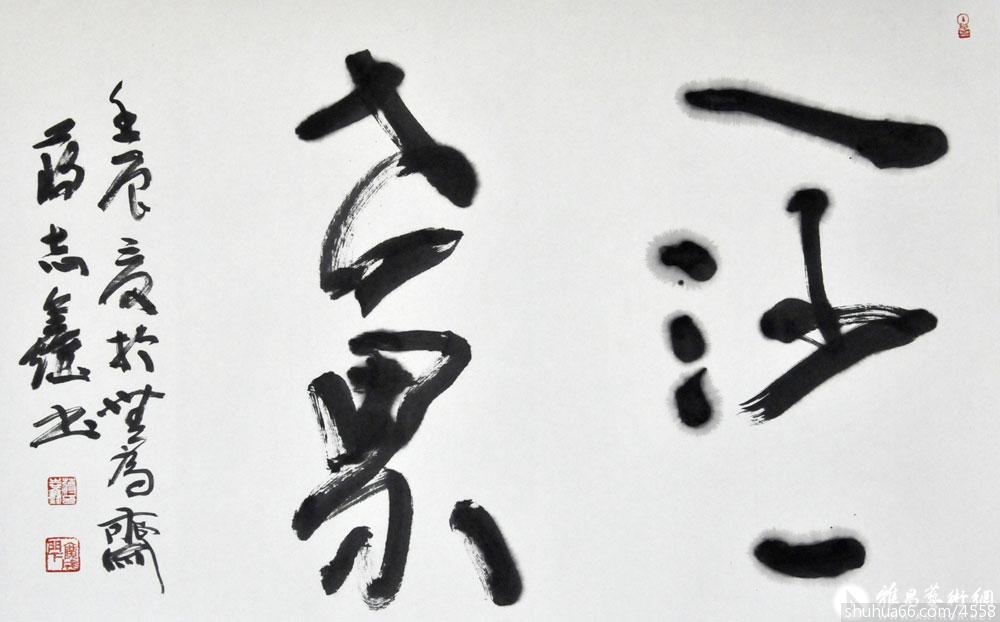 一沙一
世界
壬辰夏於無為齋
蒋志鑫书
雅昌藝術網
shuhua66.com/4558